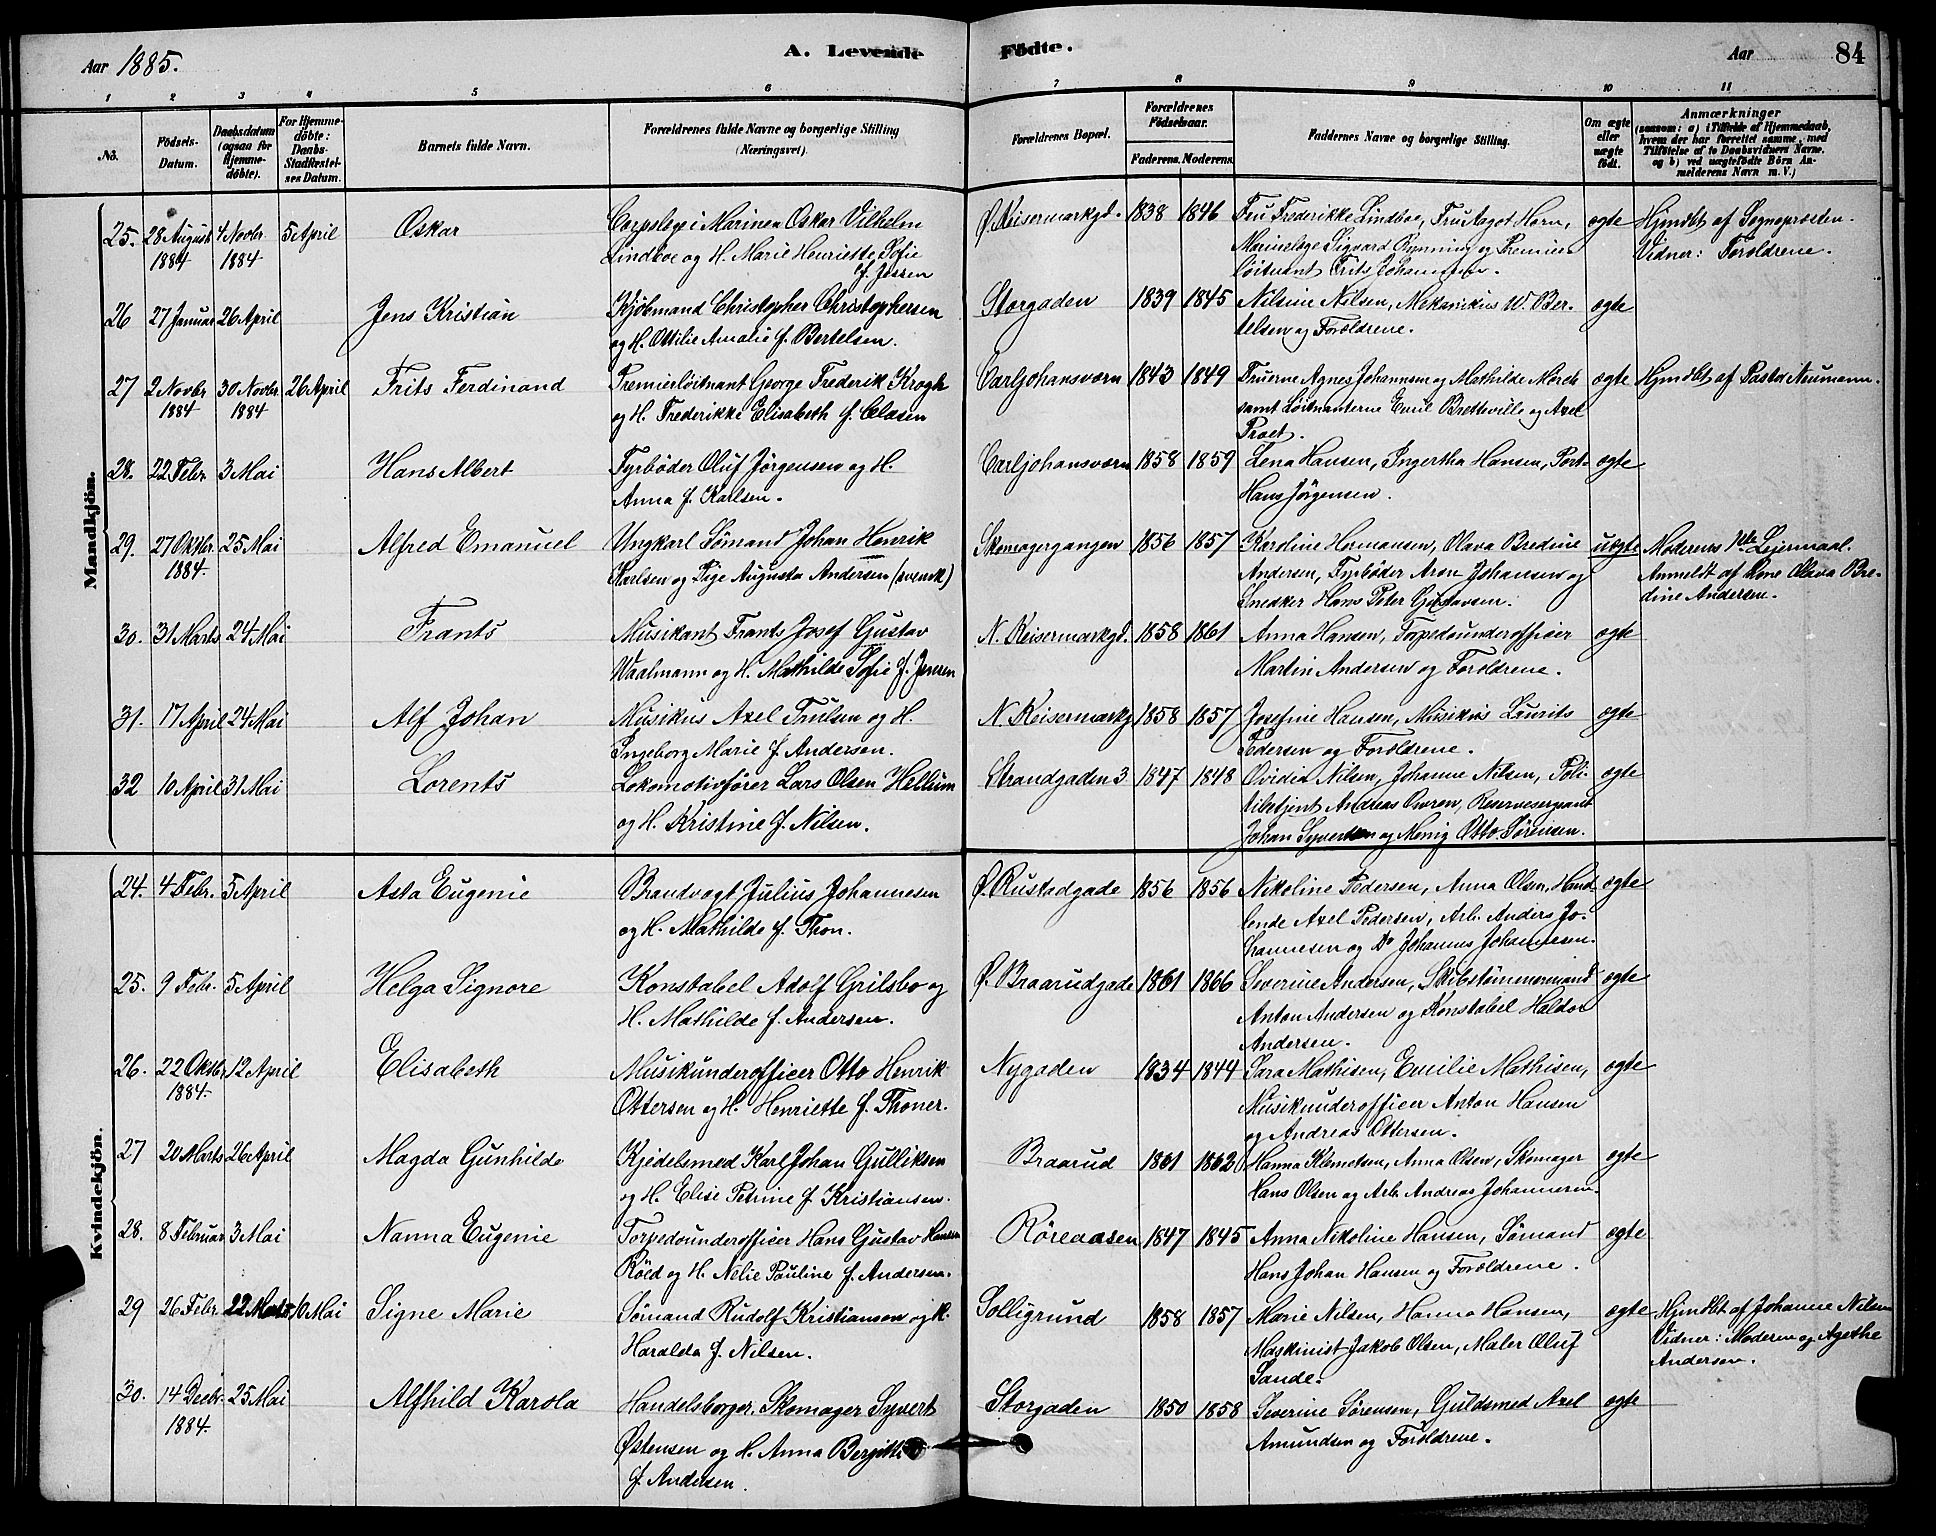 Aar 1885.
A. Levende
Fødte.
Aar
84
1
2
3
4
5
6
7
8
9
10
11
No.
Fødsels-
Datum.
Daabsdatum
(ogsaa for
Hjemme-
døbte).
For Hjemme-
døbte:
Daabs-
Stadfæstel-
ses Datum.
Barnets fulde Navn.
Forældrenes fulde Navne og borgerlige Stilling
(Næringsvei).
Forældrenes Bopæl.
Forældrenes
Fødselsaar.
Faderens.
Moderens.
Faddernes Navne og borgerlige Stilling.
Om ægte
eller
uægte
født.
Anmærkninger
(saasom: a) i Tilfælde af Hjemmedaab,
hvem der har forrettet samme, med
Tilføielse af to Daabsvidners Navne,
og b) ved uægtefødte Børn An-
melderens Navn m. V.)
Mandkjön.
25. 28 August 4 Novbr 5 April Oskar Corpslæge i Marinen Oskar Vilhelm Ø. Keisermarkgd. 1838 1846 Fru Frederikke Lindboe, Fru Aagot Horn, ægte Hjmdbt af Sognepræsten.
1884 1884 Lindboe og H. Marie Henriette Sofie Marinelæge Sigvard Rynning og Premier Vidner: Forældrene.
f. Jessen løitnant Frits Johannsen.
26 27 Januar 26 April Jens Kristian Kjøbmand Christopher Christophersen Storgaden 1839 1845 Nilsine Nilsen, Mekanikus W. Ber- ægte
og H. Ottilie Amalie f. Bertelsen. telsen og Forældrene.
27 2 Novbr 30 Novbr 26 April Frits Ferdinand Premierløitnant George Frederik Krogh Carljohansværn 1843 1849 Fruerne Agnes Johannsen og Mathilde Mørch ægte Hjmdbt af Pastor Neumann.
1884 1884 og H. Frederikke Elisabeth f. Clasen samt Løitnanterne Emil Bretteville og Axel
28. 22 Febr. 3 Mai Hans Albert Fyrbøder Oluf Jørgensen og H. Carljohansværn 1858 1859 Lena Hansen, Ingertha Hansen, Port. ægte
Anna f. Karlsen. Hans Jørgensen.
29. 27 Oktbr 25 Mai Alfred Emanuel Ungkarl Sømand Johan Henrik Skomagergangen 1856 1857 Karoline Hermansen, Olava Bredine uægte Moderens 1ste Leiermaal.
1884. Karlsen og Pige Augusta Andersen (svensk) Andersen, Fyrbøder Aron Johansen og Anmeldt af Kone Olava Bre-
Snedker Hans Peter Gustavsen. dine Andersen.
30. 31 Marts 24 Mai Frants Musikant Frants Josef Gustav N. Keisermarkgd. 1858 1861 Anna Hansen, Torpedounderofficier ægte
Waalmann og H. Mathilde Sofie f. Jensen Martin Andersen og Forældrene.
31. 17 April 24 Mai Alf Johan Musikus Axel Trulsen og H. N. Keisermarkg 1858 1857 Josefine Hansen, Musikus Laurits ægte
Ingeborg Marie f. Andersen. Pedersen og Forældrene.
32 10 April 31 Mai Lorents Lokomotivfører Lars Olsen Hellum Strandgaden 3 1847 1848 Ovidia Nilsen, Johanne Nilsen, Poli- ægte
og H. Kristine f. Nilsen. tibetjent Andreas Owren, Reservesergeant
Johan Syvertsen og Menig Otto Sørensen.
Kvindekjön.
24. 4 Febr. 5 April Asta Eugenie Brandvagt Julius Johannesen Ø. Rustadgade 1856 1856 Nikoline Pedersen, Anna Olsen, Hand- ægte
og H. Mathilde f. Thon. lende Axel Pedersen, Arb. Anders Jo-
hannesen og Do Johannes Johannesen.
25. 9 Febr. 5 April Helga Signore Konstabel Adolf Grilsbo og Ø. Braarudgade 1861 1866 Severine Andersen, Skibstømmermand ægte
H. Mathilde f. Andersen. Anton Andersen og Konstabel Haldor
Andersen.
26. 22 Oktbr 12 April Elisabeth Musikunderofficer Otto Henrik Nygaden 1834 1844 Sara Mathisen, Emilie Mathisen, ægte
1884. Ottersen og H. Henriette f. Thoner. Musikunderofficer Anton Hansen
og Andreas Ottersen.
27 20 Marts 26 April Magda Gunhilde Kjedelsmed Karl Johan Gulliksen Braarud 1861 1862 Hanna Klemetsen, Anna Olsen, Skomager ægte
og H. Elise Petrine f. Kristiansen. Hans Olsen og Arb. Andreas Johannesen.
28. 8 Februar 3 Mai Nanna Eugenie Torpedounderofficer Hans Gustav Hansen Røreaasen 1847 1845 Anna Nikoline Hansen, Sømand ægte
Röed og H. Nelie Pauline f. Andersen. Hans Johan Hansen og Forældrene.
29 26 Febr. 22 Marts 10 Mai Signe Marie Sømand Rudolf Kristiansen og H. Solligrund 1858 1857 Marie Nilsen, Hanna Hansen, ægte Hjmdbt af Johanne Nilsen
Haralda f. Nilsen. Maskinist Jakob Olsen, Maler Oluf Vidner: Moderen og Agethe
Sande. Andersen.
30. 14 Decbr. 25 Mai Alfhild Karola Handelsborger, Skomager Syvert Storgaden 1850 1858 Severine Sørensen, Guldsmed Axel ægte
1884. Østensen og H. Anna Bergitte Amundsen og Forældrene.
f. Andersen.